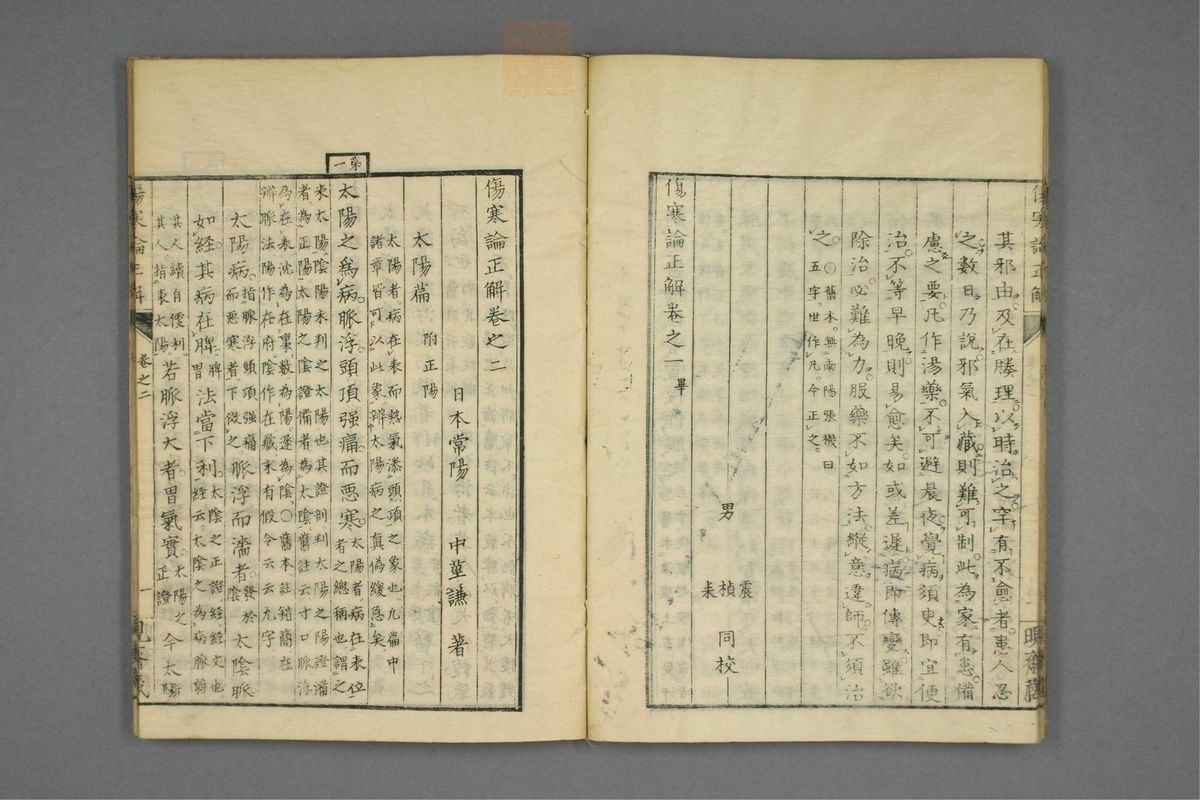 其邪由。及在腠理。以時治之。罕有不愈者。患人忍
之數日。乃說。邪氣入藏。則難可制。此為家有患備
慮之要。凡作湯藥。不可避晨夜。覺病須臾即宜便
治。不等早晚。則易愈矣。如或差遲。病即傳變。雖欲
除治。必難為力。服藥不如方法。縱意違師。不須治
之。〇舊本。無南陽張機曰
五字。世作凡。今正之。
男 震 楨 同校
傷寒論正解卷之一 畢
傷寒論正解卷之二
日本常陽 中莖謙 著
太陽篇 附正陽
太陽者。病在表。而熱氣漆頭項之象也。九篇中
諸章。皆可以此象。辨太陽病之真偽緩急矣。
第一
太陽之為病。脈浮。頭項强痛。而惡寒。太陽者。病在表位
者之總稱也。謂之
表太陽。陰陽未判之太陽也。其證剖判太陽之陽證備
者。為正陽。太陽之陰證備者。為太陰。舊註云寸口脈浮
為在表。沈為在裏。數為陽。遲為陰。〇舊本註錯簡在
辨脈法。陽作在府。陰作在藏。末有假令云云九字
太陽病。指脈浮頭項强痛
而惡寒者。下倣之
脈浮而濇者。發於
陰
太陰脈
如經。其病在脾。脾
胃
法當下利。太陰之正證。經經文也
經云。太陰之為病。脈弱
其人續自便利。
其人指表太陽
若脈浮大者。胃氣實。太陽之
正證
今太陽
卷之二
一